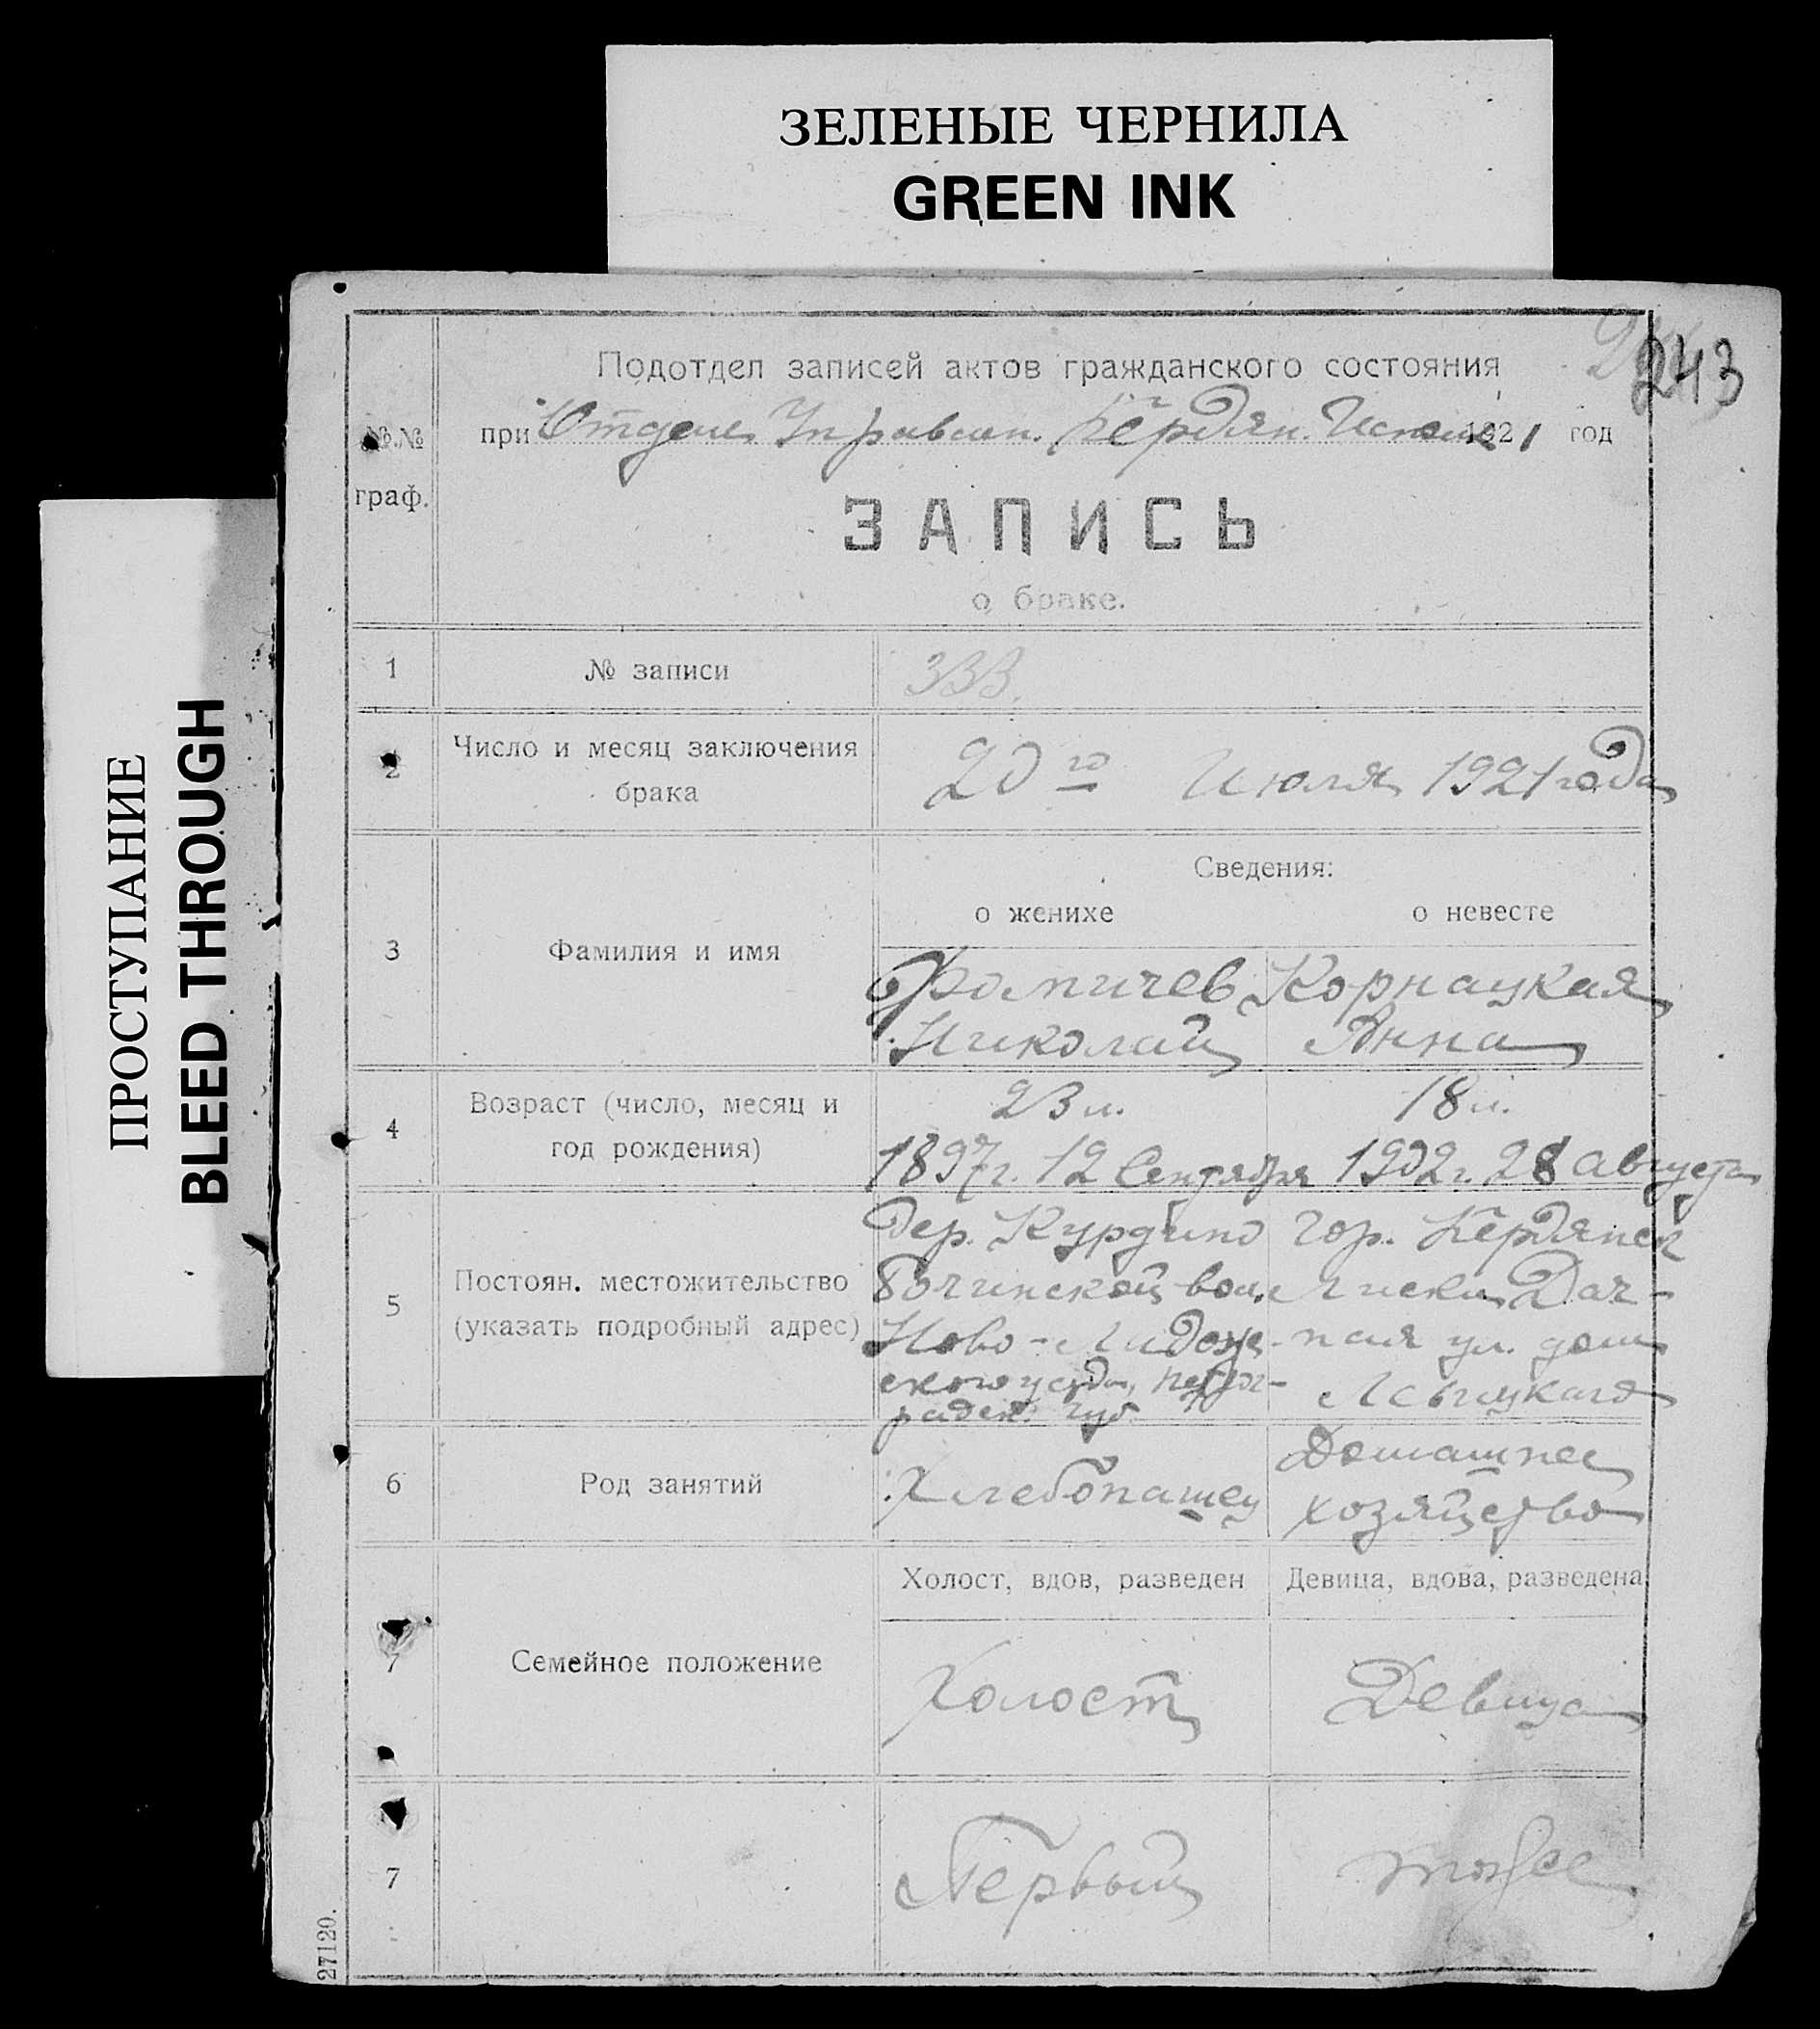 ЗЕЛЕНЫЕ ЧЕРНИЛА
GREEN INK
ПРОСТУПАНИЕ
BLEED THROUGH
243
Подотдел записей актов гражданского состояния
№.№ граф.
при Отделе Управлен. Бердян. Исполк. 1921 год
ЗАПИСЬ
о браке.
1 № записи 333.
2 Число и месяц заключения
брака
20го Июля 1921 года
Сведения:
о женихе о невесте
3 Фамилия и имя
Фомичев Корнацкая
Николай Анна
4 Возраст (число, месяц и
год рождения)
23 л. 18 л.
1897 г. 12 Сентября 1902 г. 28 Августа
5 Постоян. местожительство
(указать подробный адрес)
Дер. Курдино
вол.
Ново-Ладож-
ского уезда, Петрог-
радск. губ.
гор. Бердянск
Лиски Дач-
ная ул. дом
6 Род занятий
Хлебопашец
Домашнее
хозяйство
7 Семейное положение
Холост, вдов, разведен Девица, вдова, разведена
Холост Девица
7
Первый тоже
27120.